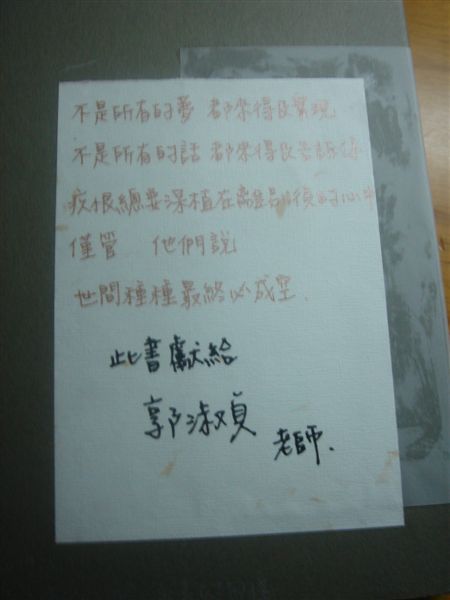 不是所有的夢 都來得及實現
不是所有的話 都來得及告訴你
疚恨總要深植在離別後的心中
僅管 他們說
世間種種最終必成空.
此書獻給
郭淑貞
老師.